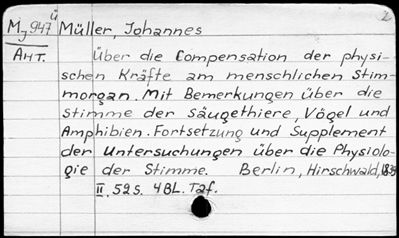 2
Mj 947 ü Müller, Johannes
Ант. Über die Compensation der physi-
schen Kräfte am menschlichen Stim-
morgan. Mit Bemerkungen über die
Stimme der säugethiere, Vögel und
Amphibien. Fortsetzung und Supplement
der Untersuchungen über die Physiolo-
gie der Stimme. Berlin, Hirschwald, 1839
II, 52 S. 4 BL. Taf.